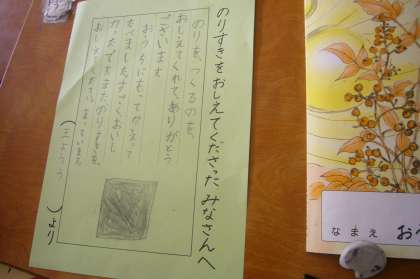 のりすきをおしえてくださったみなさんへ
のりを、つくるのを、
おしえてくれて、ありがとう
ございます
おうちにもってかえって
たべました。すごくおいし
かったです。またのりすきを、
より
なまえ